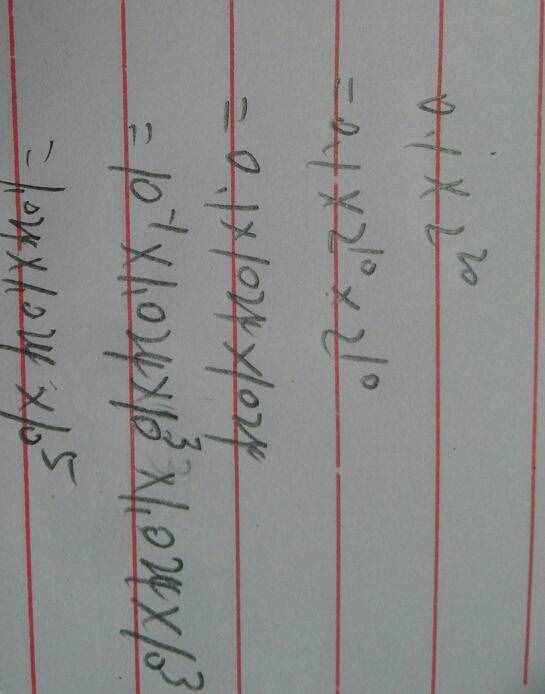 0.1×2²⁰
=0.1×2¹⁰×2¹⁰
=0.1×1024×1024
=10⁻¹×1.024×10³×1.024×10³
=1.024×1.024×10⁵